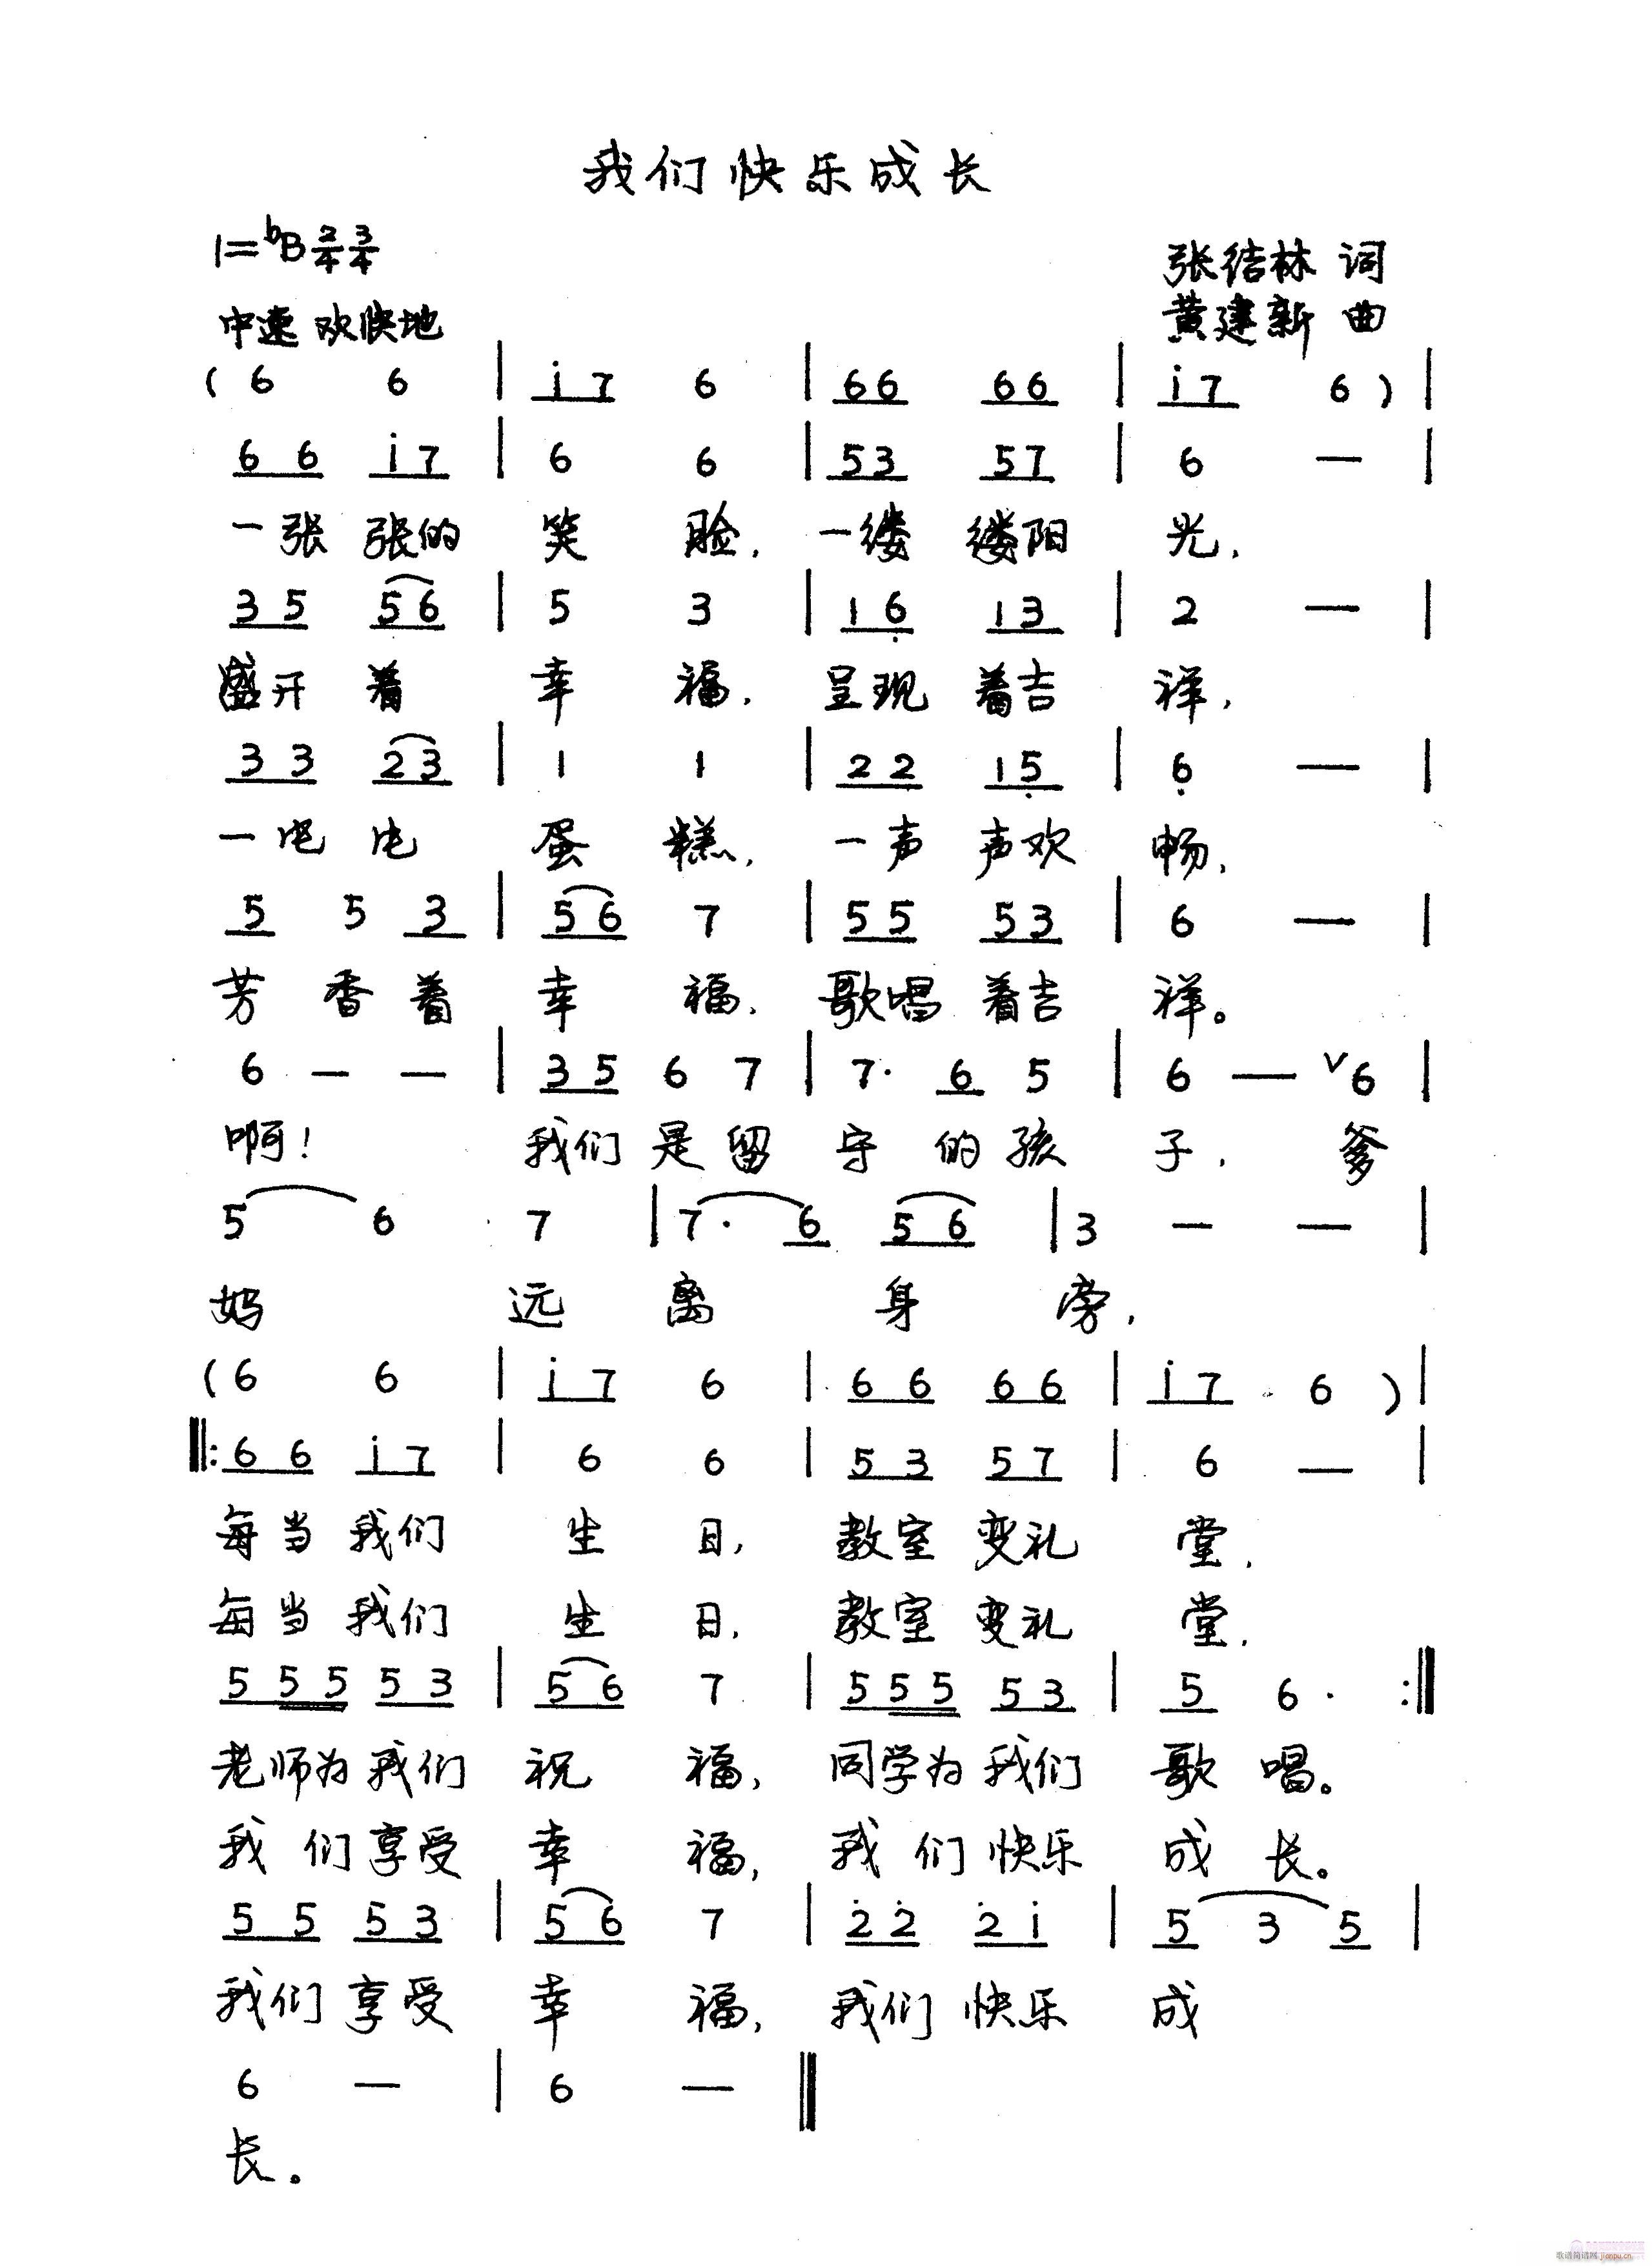 我们快乐成长
1=♭B 2/4 3/4
张结林 词
中速 欢快地
黄建新 曲
( 6 6 | i7 6 | 66 66 | i7 6 ) |
66 i7 | 6 6 | 53 57 | 6 — |
一张张的笑脸,一缕缕阳光,
35 56 | 5 3 | 16 13 | 2 — |
盛开着幸福,呈现着吉祥,
33 23 | 1 1 | 22 15 | 6 — |
一屯屯蛋糕,一声声欢畅,
5 5 3 | 56 7 | 55 53 | 6 — |
芳香着幸福,歌唱着吉祥。
6 — — | 35 6 7 | 7· 6 5 | 6 — ∨6 |
啊!我们是留守的孩子,爹
5 6 7 | 7· 6 56 | 3 — — |
妈远离身旁,
( 6 6 | i7 6 | 66 66 | i7 6 ) |
‖: 66 i7 | 6 6 | 53 57 | 6 — |
每当我们生日,教室变礼堂,
每当我们生日,教室变礼堂,
555 53 | 56 7 | 555 53 | 5 6· :‖
老师为我们祝福,同学为我们歌唱。
我们享受幸福,我们快乐成长。
55 53 | 56 7 | 22 2i | 5 3 5 |
我们享受幸福,我们快乐成
6 — | 6 — ‖
长。
歌谱简谱网 jianpu.cn